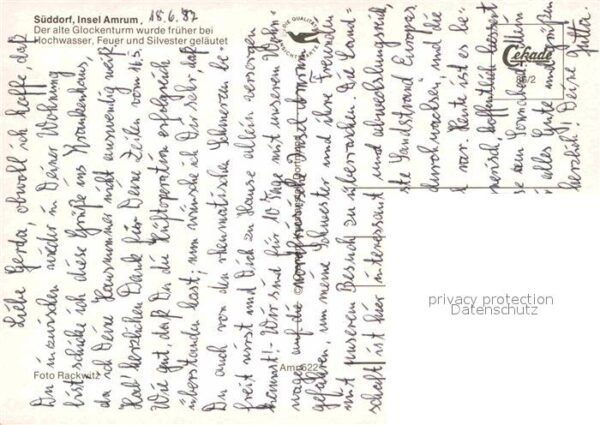 Süddorf, Insel Amrum,
Der alte Glockenturm wurde früher bei
Hochwasser, Feuer und Silvester geläutet
18.6.97
DIE QUALITÄTS
ANSICHTSKARTE
Cekade
86/2
Liebe Gerda, obwohl ich hoffe, daß
Du inzwischen wieder in Deiner Wohnung
bist, schicke ich diese Grüße ins Krankenhaus,
da ich Deine Hausnummer nicht auswendig weiß.
Hab' herzlichen Dank für Deine Zeilen vom
Wie gut, daß Du die Hüftoperation erfolgreich
überstanden hast; nun wünsche ich Dir sehr, daß
Du auch von den rheumatischen Schmerzen be-
freit wirst und Dich zu Hause allein versorgen
kannst! - Wir sind für 10 Tage mit unserem Wohn-
wagen auf die nordfriesische Insel Amrum
gefahren, um meine Schwester und ihre Freundin
mit unserem Besuch zu überraschen. Die Land-
schaft ist hier interessant und abwechslungsreich,
ste Sandstrand Europas
durchwachsen, und die
war. Heute ist es be
nerisch, hoffentlich bessert
alles Gute und grüßen
herzlich! Deine Jutta.
Foto Rackwitz
Am 622
privacy protection
Datenschutz